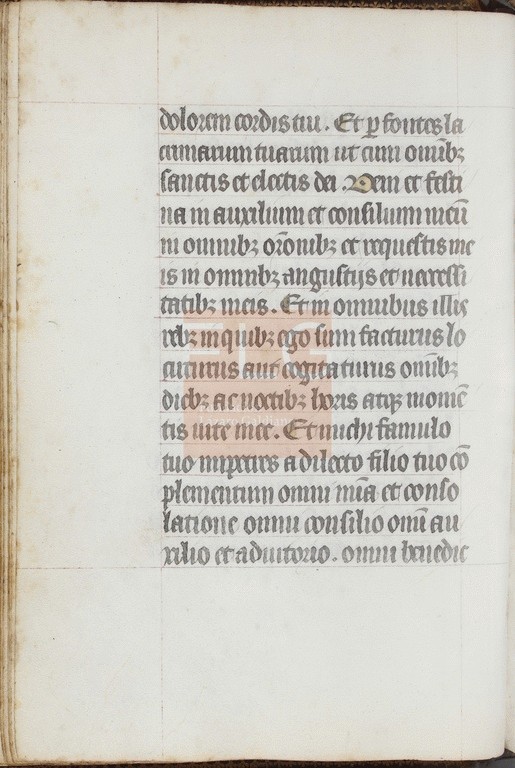 dolorem cordis tui. Et p̲ fontes la
crimarum tuarum ut cum om̅ib;
sanctis et electis dei Veni et festi
na in auxilium et consilium meū
in omnib; or̅onib; et requestis me
is in omnib; angustijs et necessi
tatib; meis. Et in omnibus illis
reb; in quib; ego sum facturus lo
cuturus aut cogitaturus om̅ib;
dieb; ac noctib; horis atq; momē
tis vite mee. Et michi famulo
tuo impetres a dilecto filio tuo cō
plementum omni mi̅a et conso
latione omni consilio omi̅ au
xilio et adiutorio. omni benedic